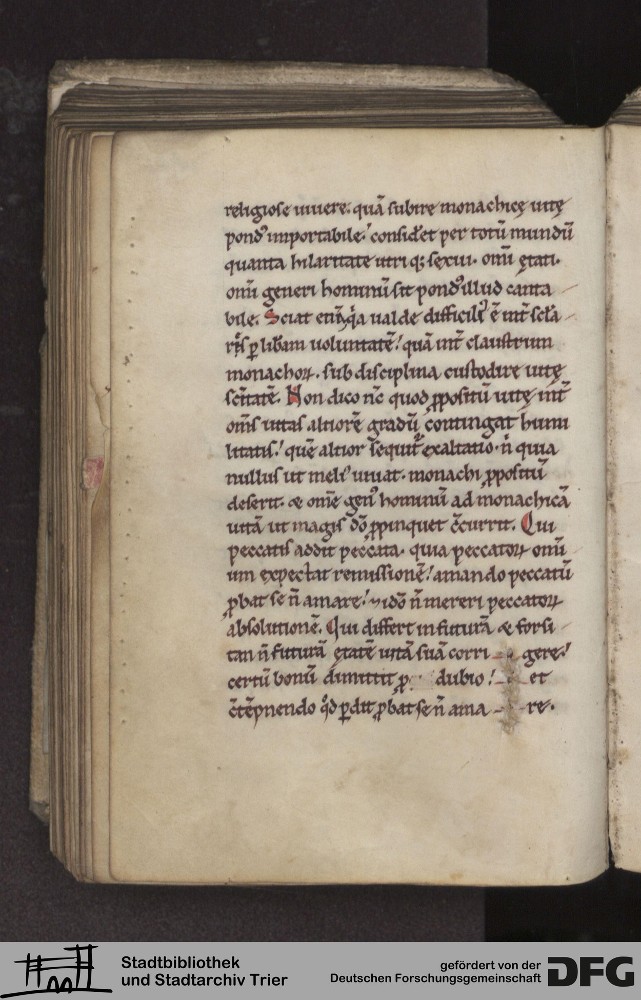 religiose uiuere. quā subire monachicę uitę
pondꝰ importabile! consid̾et per totū mundū
quanta hilaritate utriq; sexui. omi̅ ętati.
omi̅ generi hominū sit pondꝰ illud canta
bile. Sciat ualde difficiliꝰ ē int̾
ꝑ uoluntatē! quā int̾ claustrum
monachoꝝ. sub disciplina custodire uitę
sc̄itatē. Non dico nc̄ quod ꝓpositū uitę int̾
om̄s uitas altiorē gradū contingat humi
litatis! quē altior sequit̾ exaltatio. n̄ quia
nullus ut meliꝰ uiuat. monachi ꝓpositū
deserit. & om̄e genꝰ hominū ad monachicā
uitā ut magis dō ꝓpinquet c̄currit. Qui
peccatis addit peccata. quia peccatoꝝ omi̅
um expectat remissionē! amando peccatū
ꝓbat se n̄ amare! ⁊ idō n̄ mereri peccatoꝝ
absolutionē. Qui differt in futurā & forsi
tan n̄ futurā ętatē uitā suā corri gere!
certū bonū dimittit ꝓ dubio! et
c̄tēpnendo qd̄ ꝑdit ꝓbat se n̄ ama re.
Stadtbibliothek
und Stadtarchiv Trier
gefördert von der
Deutschen Forschungsgemeinschaft
DFG